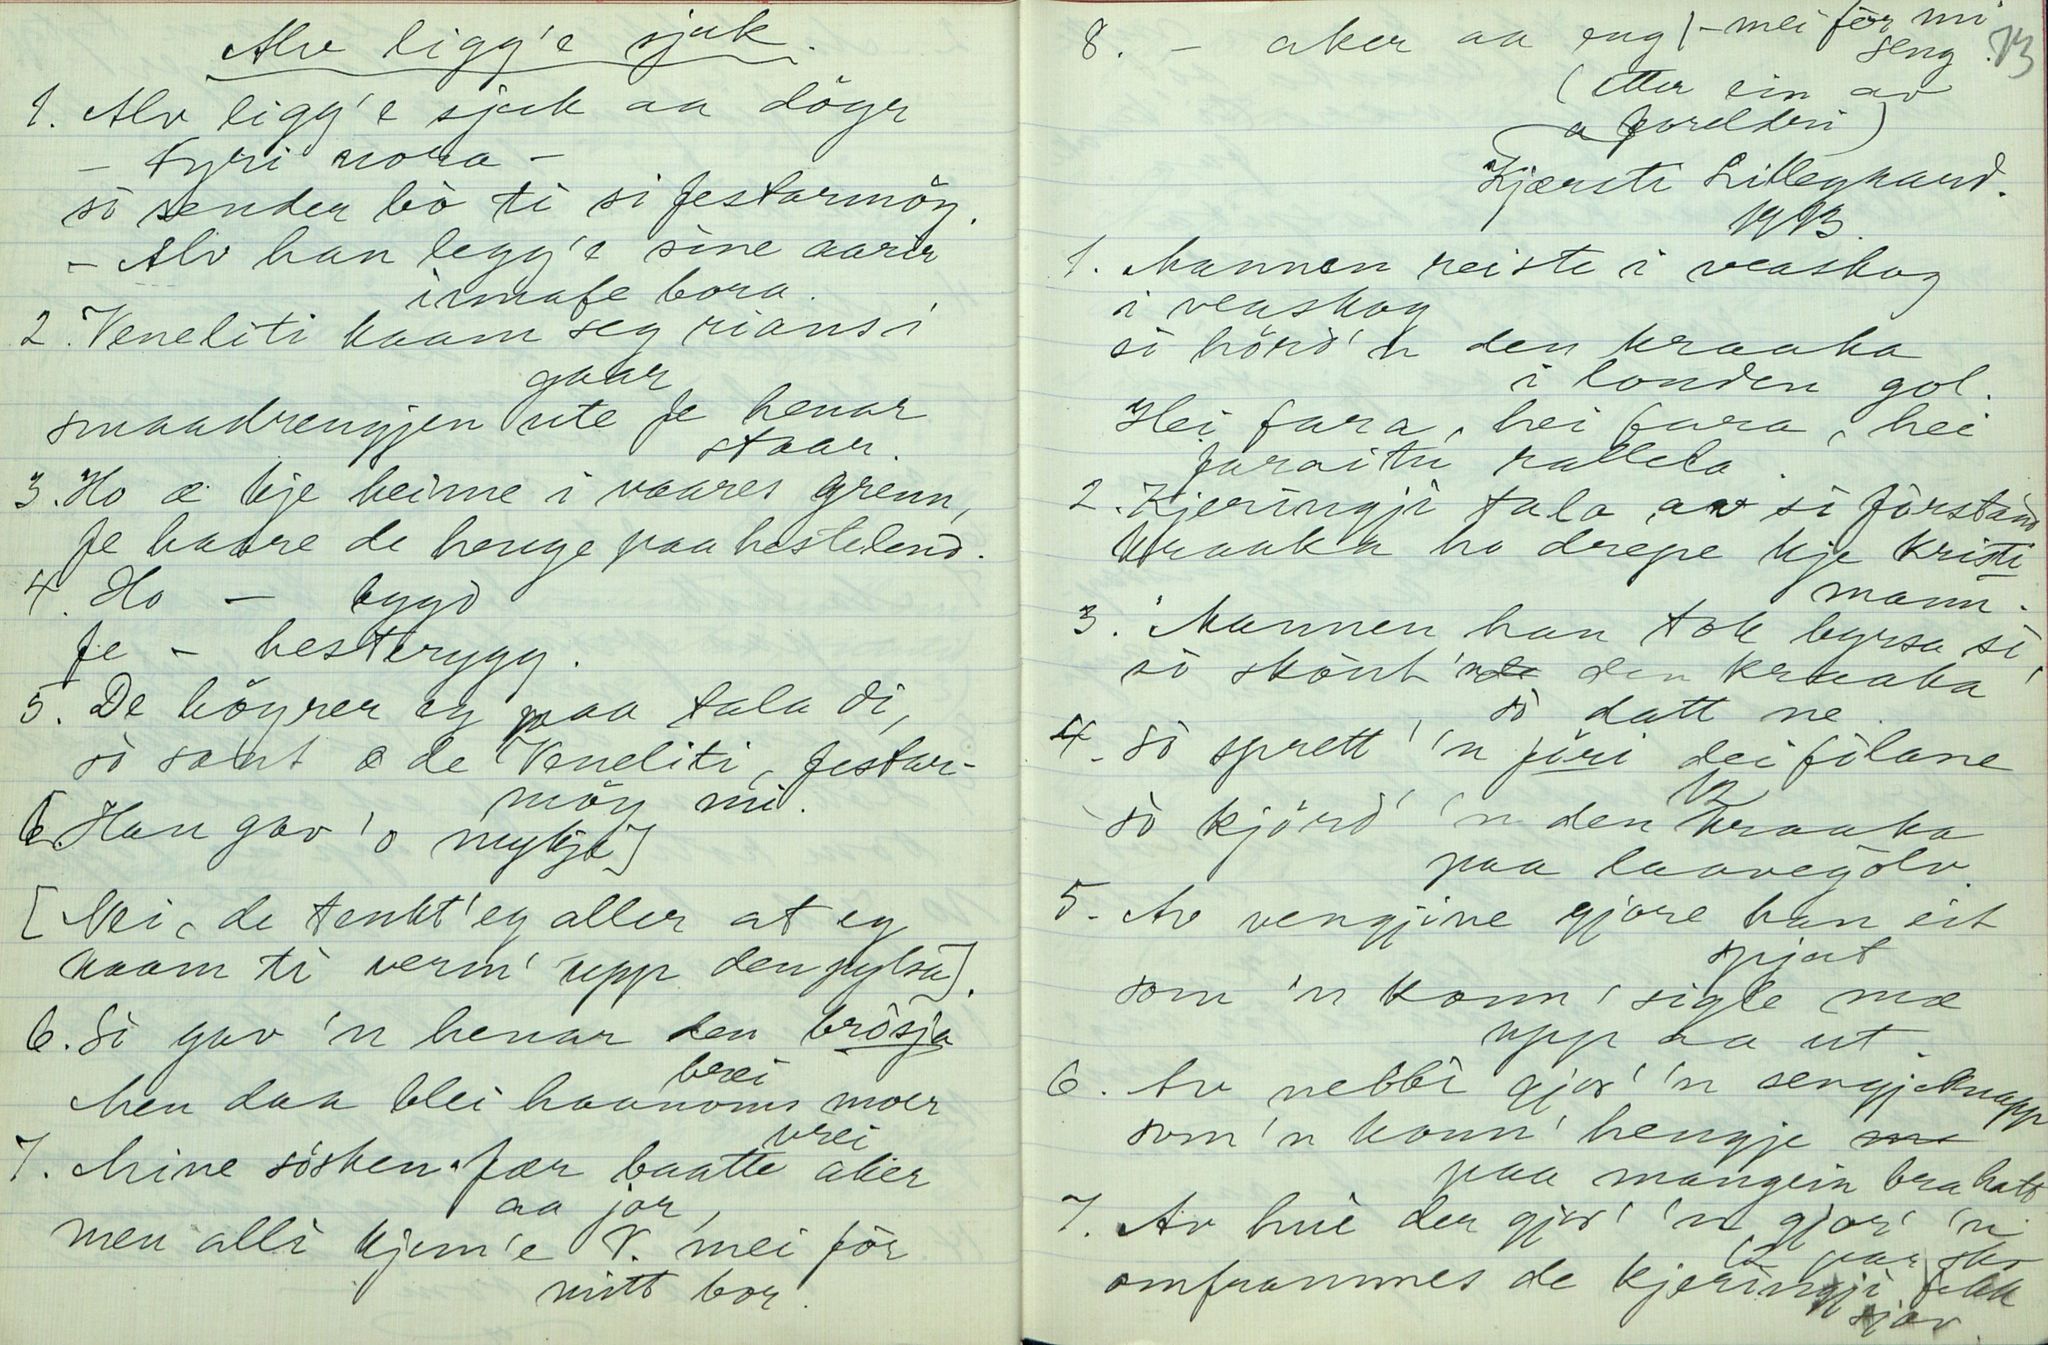 Alv ligg'e sjuk.
1. Alv ligg'e sjuk aa döyr
– fyri nora –
so sender bò ti si festarmöy.
– Alv han legg'e sine aarir
i bora.
2. Veneliti kaam seg rians i
gaar
smaadrengjen ute fe henar
staar.
3. Ho æ kje heime i vaares grenn,
fe haare de henge paa hestelend.
4. Ho – bygd
fe – hesterygg.
5. De höyrer eg paa tala di,
so sant æ de Veneliti, festar-
möy mi.
[6. Han gav 'o mykje]
[Nei, de tenkt' eg aller at eg
kaam ti verm' upp den pylsa].
6. Si gav 'n henar den brösja
brei
Men daa blei haanoms moer
vrei
7. Mine sösken fær baatte aker
aa jor,
men alli kjem'e V. mei för
mitt bor.
8. – aker aa eng – mei för mi
seng.
73
(etter ein av
forelderi)
Kjærsti Lillegaard.
1913.
1. Mannen reiste i veaskog
i veaskog
so hörd'n den kraaka
i londen gol.
Hei fara, hei fara, hei
faraitu rallela.
2. Kjeringji tala av si forstand
kraaka ho drepe kje kristi
mann.
3. Mannen han tok byrsa si,
so skönt 'n den kraaka
so datt ne.
4. So sprett' 'n föri dei folane
12
so kjörd' 'n den kraaka
paa laavegolv.
5. Av vengjine gjore han eit
spjut
som 'n konn' sigle mæ
upp aa ut.
6. Av nebbi gjor' 'n sengjeknapp
som 'n konn' hengje
paa mangein bra hatt
7. Av hui der gjor' 'n gjor' 'n
12 par sko
omframmes de kjeringji fekk
sjov.